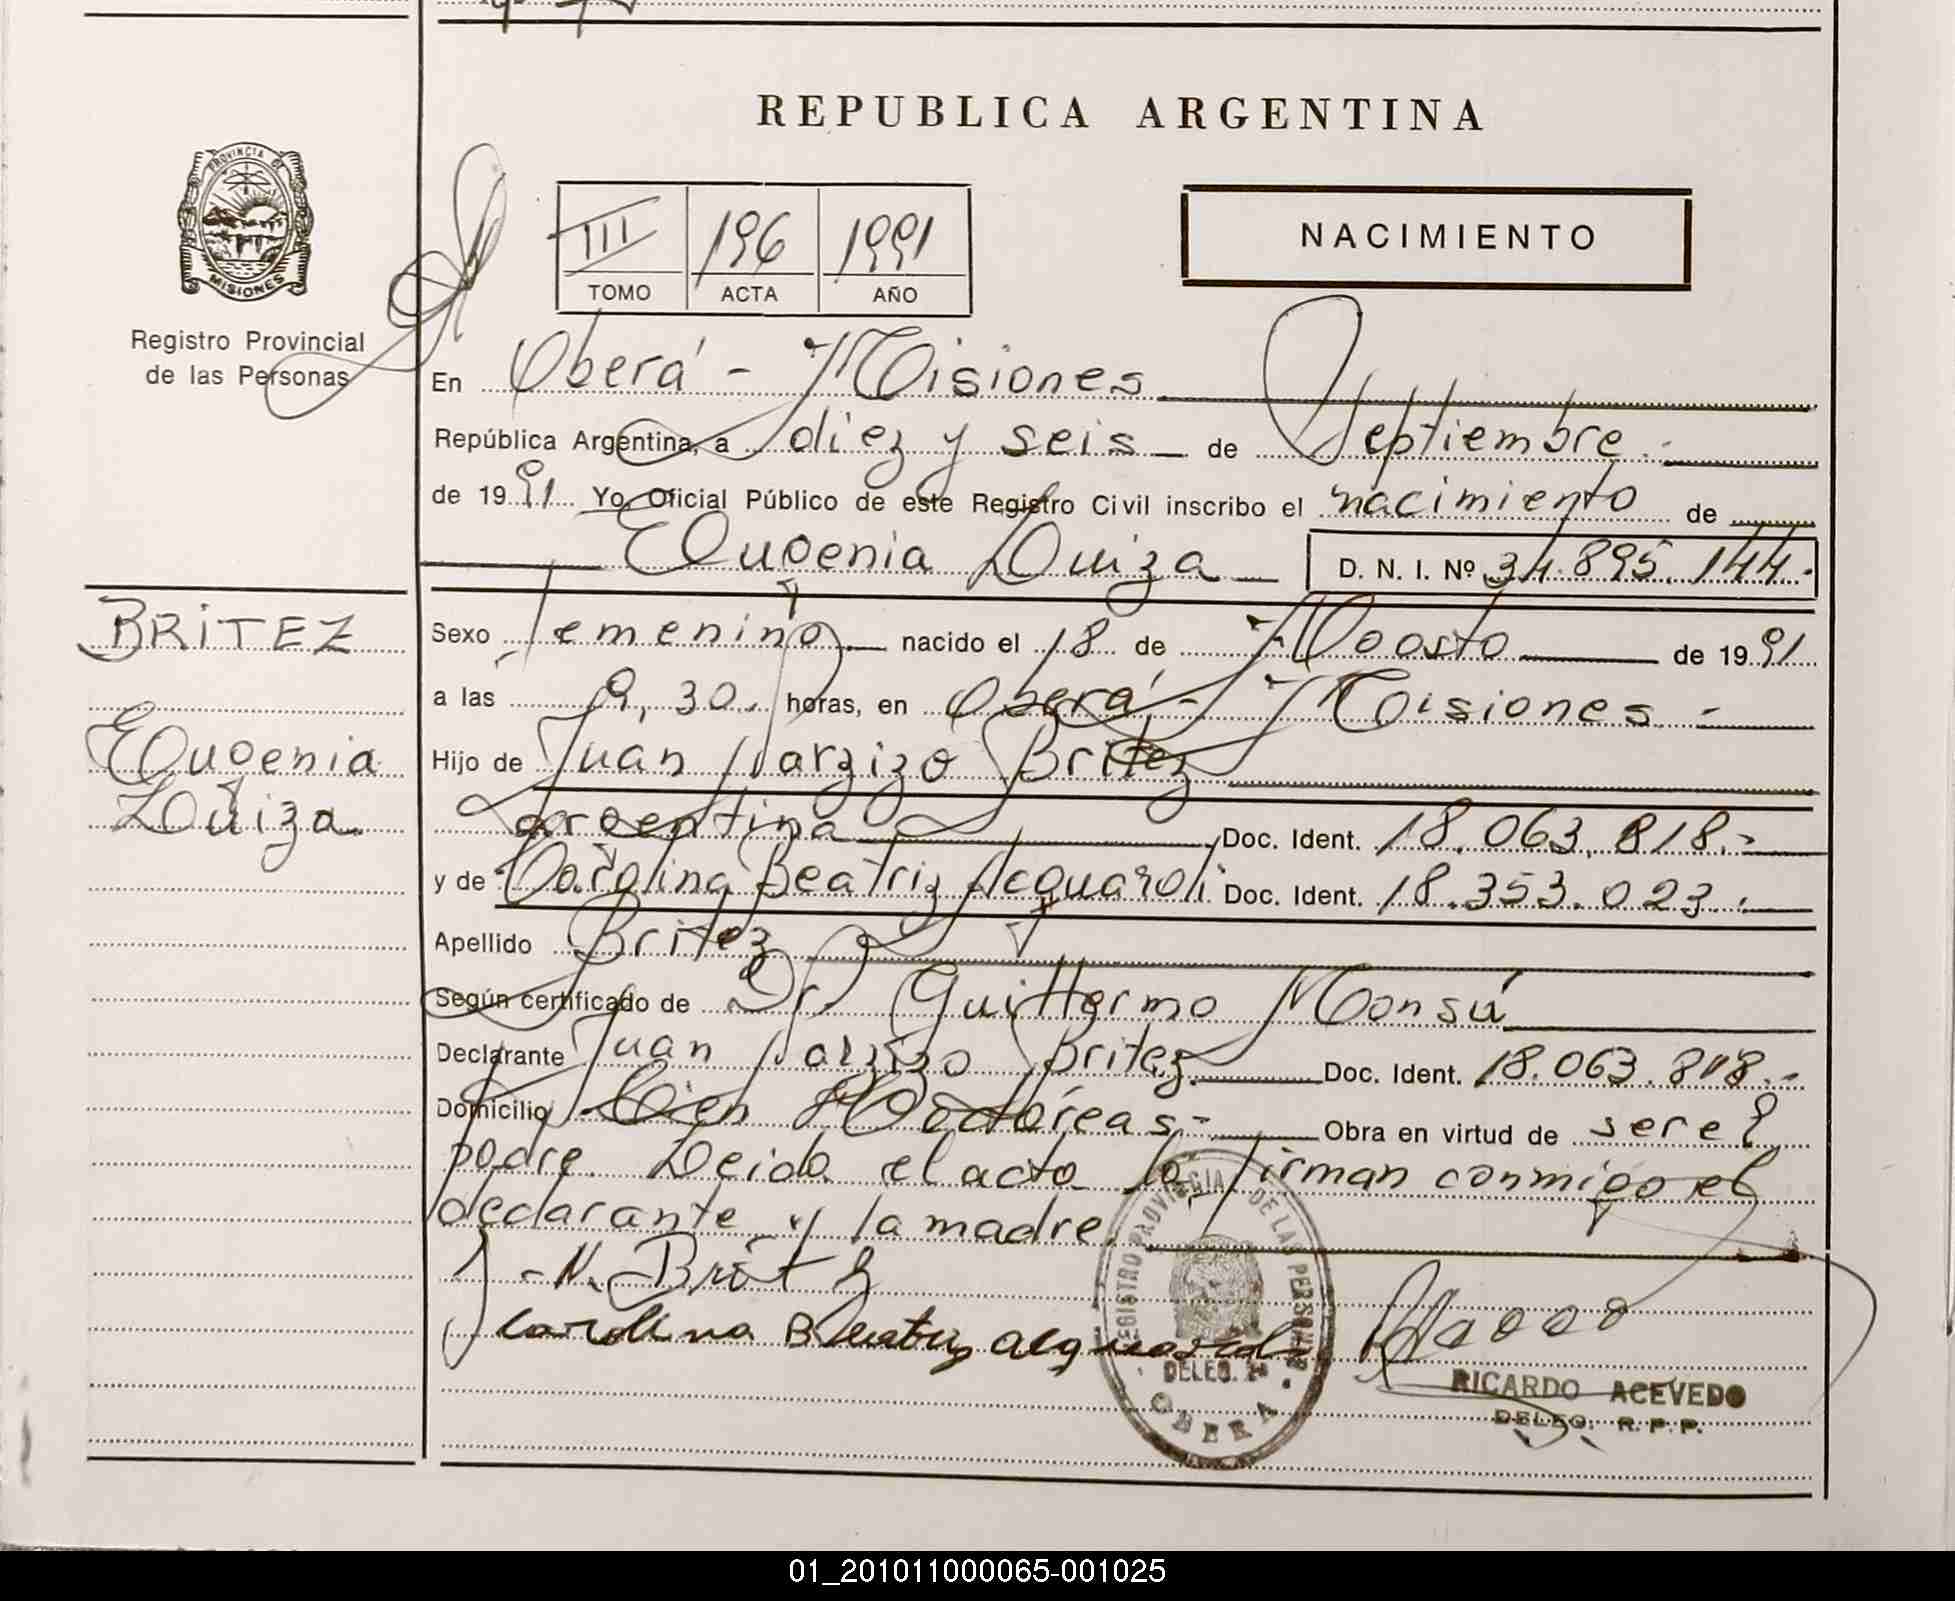 REPUBLICA ARGENTINA
PROVINCIA DE
MISIONES
Registro Provincial
de las Personas
III 196 1991
TOMO ACTA AÑO
NACIMIENTO
En Oberá - Misiones
República Argentina, a diez y seis de Septiembre.
de 1991 Yo, Oficial Público de este Registro Civil inscribo el nacimiento de
Eugenia Luiza D. N. I. Nº 34.895.144.
BRITEZ
Eugenia
Luiza
Sexo Femenino nacido el 18 de Agosto de 1991
a las 9,30. horas, en Oberá, - Misiones -
Hijo de Juan Narzizo Britez
argentina Doc. Ident. 18.063.818.-
y de Carolina Beatriz Acquaroli Doc. Ident. 18.353.023.-
Apellido Britez
Según certificado de Dr. Guillermo Monsú
Declarante Juan Narzizo Britez Doc. Ident. 18.063.818.-
Domicilio Cien Hectáreas - Obra en virtud de ser el
padre. Leida el acta la firman conmigo el
declarante y la madre.
J - N. Britez
Carolina Beatriz Acquaroli
REGISTRO PROVINCIAL DE LAS PERSONAS
DELEG.
OBERA
RICARDO ACEVEDO
DELEG. R.P.P.
01_201011000065-001025